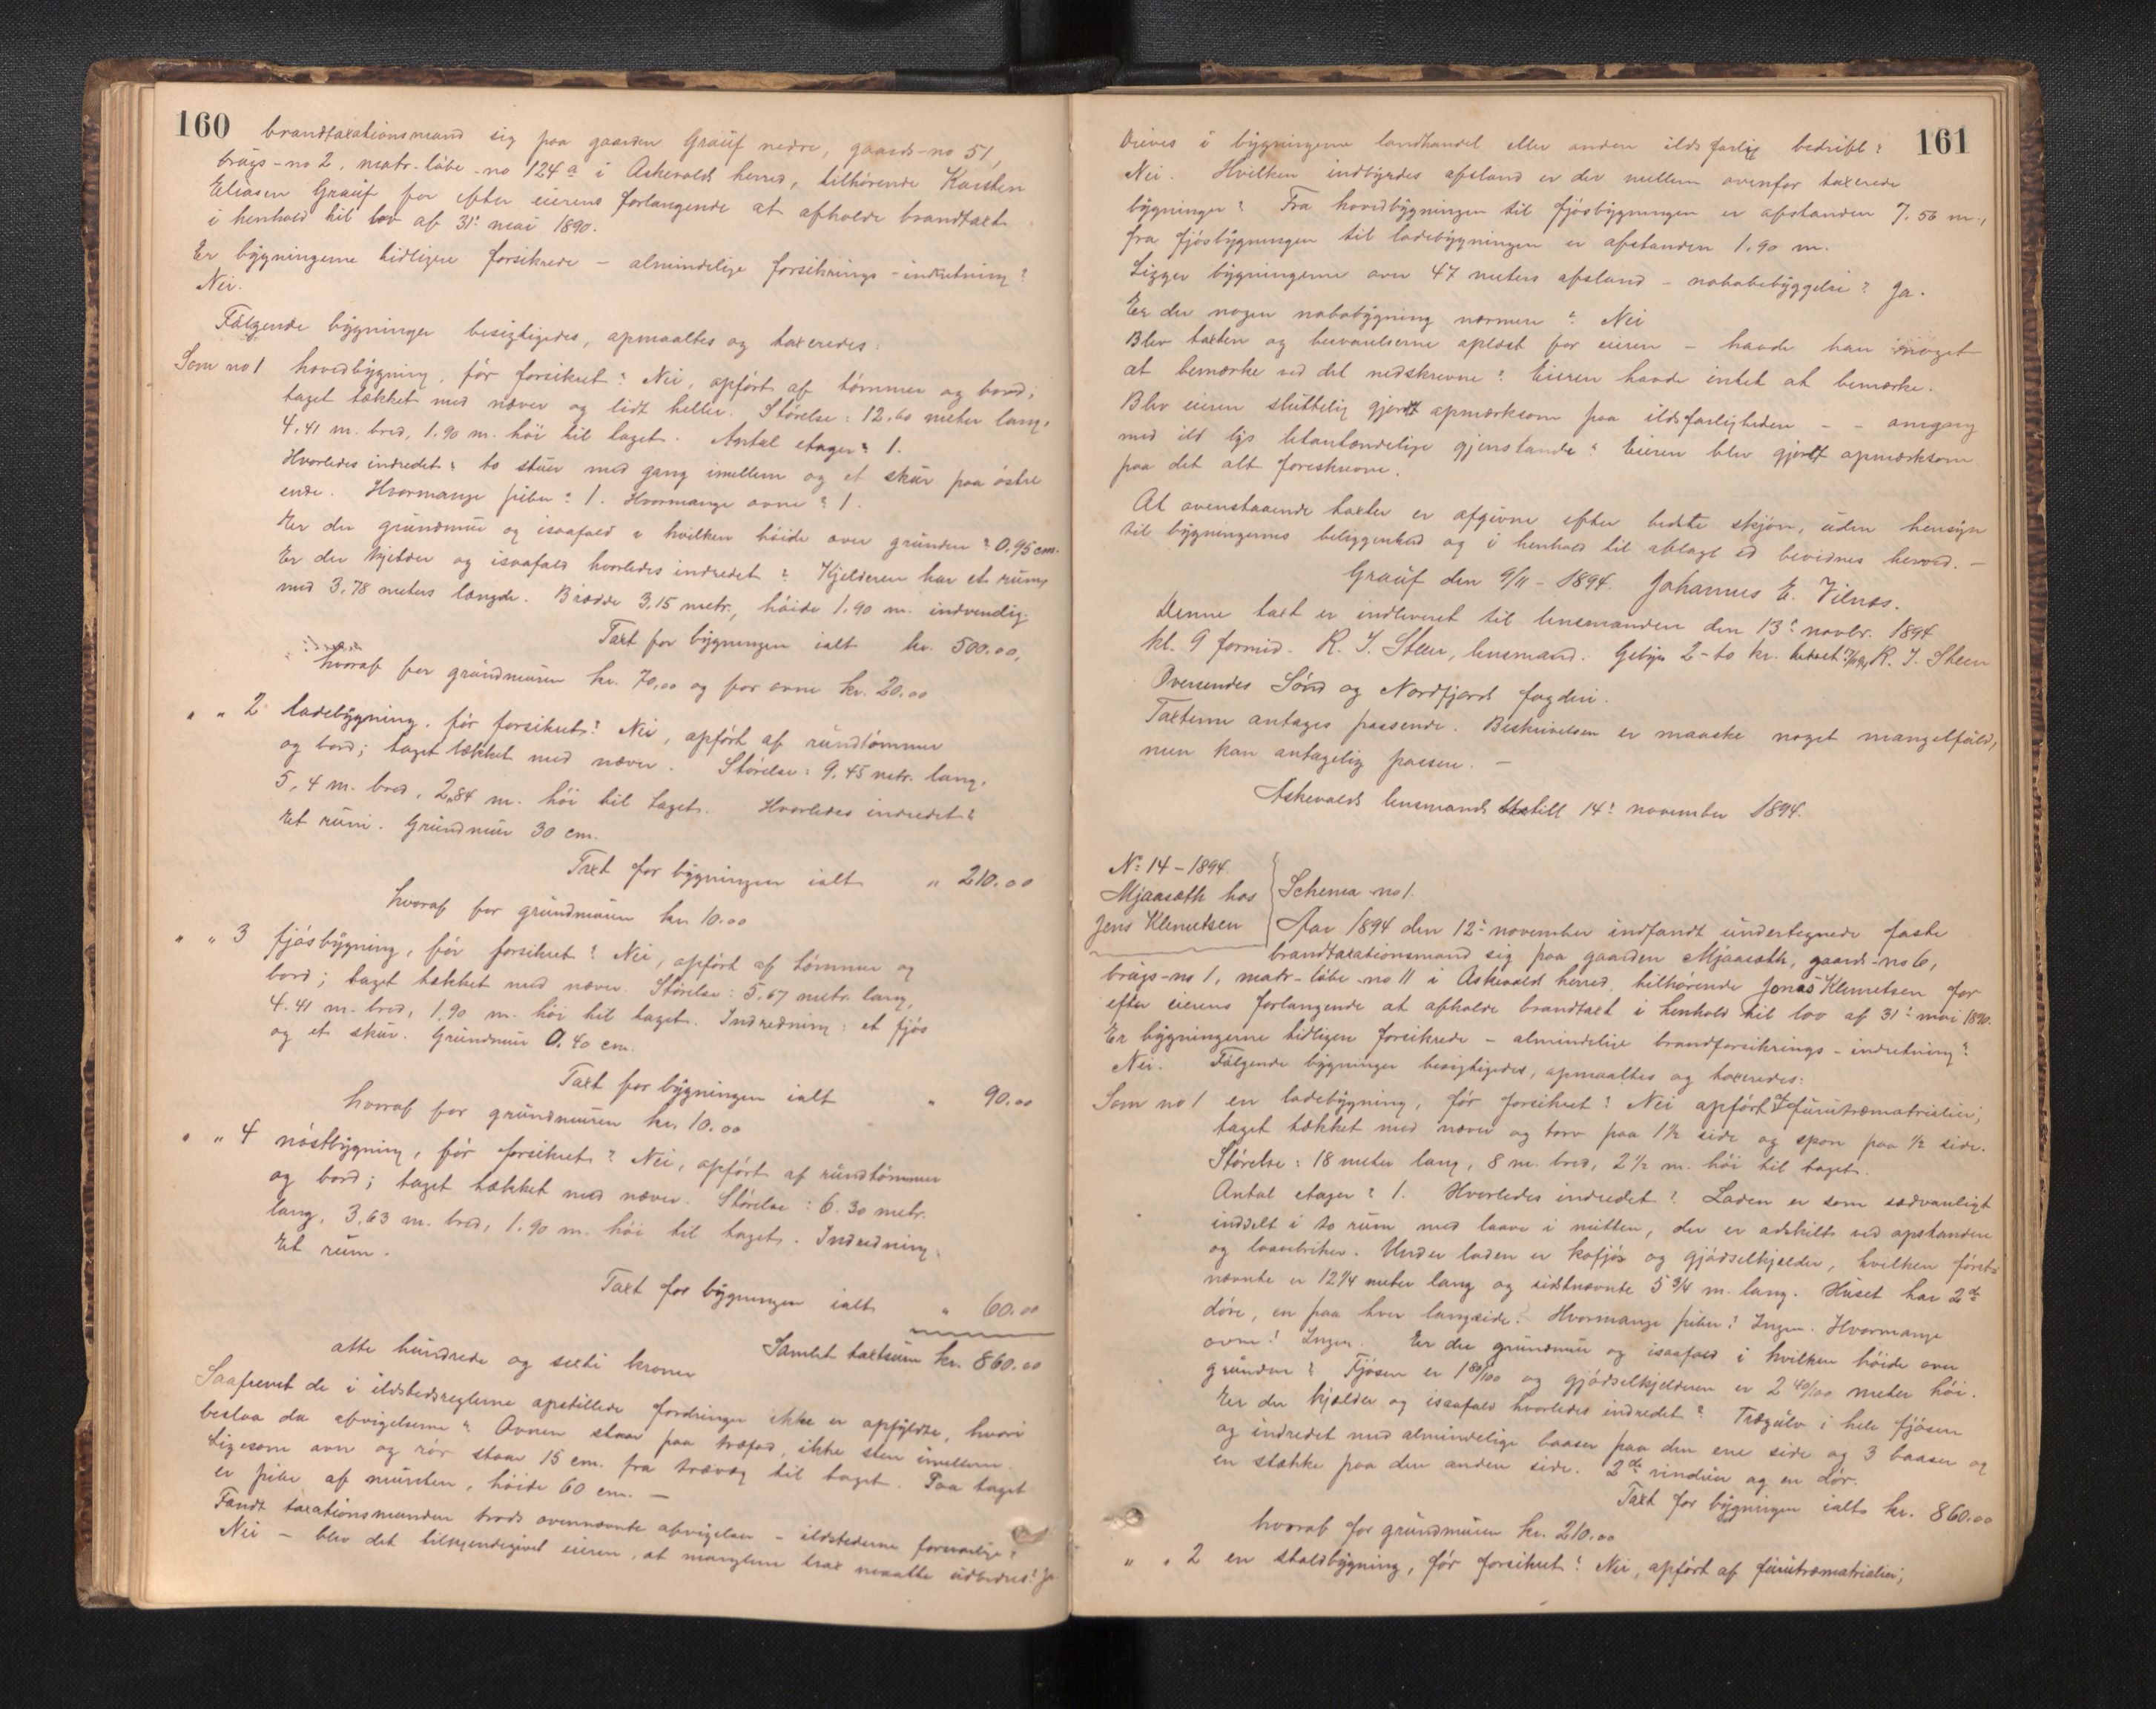 160
brandtaxationsmand sig paa gaarden Grauf nedre, gaards-no 51,
brugs-no 2, matr-løbe-no 124 a i Askevolds herred, tilhørende Karsten
Eliasen Grauf for efter eierens forlangende at afholde brandtaxt
i henhold til lov af 31: mai 1890.
Er bygningerne tidligere forsikrede – almindelige forsikrings-indretning?
Nei.
Følgende bygninger besigtigedes, opmaaltes og taxeredes:
Som no 1 hovedbygning, før forsikret? Nei, opført af tømmer og bord;
taget tækket med næver og lidt heller. Størelse: 12,60 meter lang,
4,41 m. bred, 1,90 m. høi til taget. Antal etager? 1.
Hvorledes indredet? to stuer med gang imellem og et skur paa østre
ende. Hvormange piber? 1. Hvormange ovne? 1.
Er der grundmur og isaafald i hvilken høide over grunden? 0,95 cm.
Er der kjelder og isaafald hvorledes indredet? Kjelderen har et rum,
med 3,78 meters længde. Brædde 3,15 metr., høide 1,90 m. indvendig.
Taxt for bygningen ialt kr. 500.00,
hvoraf for grundmuren kr. 70,00 og for ovne kr. 20.00
" " 2 ladebygning, før forsikret? Nei, opført af rundtømmer
og bord; taget tækket med næver. Størelse: 9,45 metr. lang,
5,4 m. bred, 2,84 m. høi til taget. Hvorledes indredet?
Et rum. Grundmur 30 cm.
Taxt for bygningen ialt " 210.00
hvoraf for grundmuren kr. 10.00
" " 3 fjøsbygning, før forsikret? Nei, opført af tømmer og
bord; taget tækket med næver. Størelse: 5,67 metr. lang,
4.41 m. bred, 1,90 m. høi til taget. Indredning: et fjøs
og et skur. Grundmur 0.40 cm.
Taxt for bygningen ialt " 90.00
hvoraf for grundmuren kr. 10.00
" " 4 nøstbygning, før forsikret? Nei, opført af rundtømmer
og bord; taget tækket med næver. Størelse: 6.30 metr.
lang, 3,63 m. bred, 1.90 m. høi til taget. Indredning:
Et rum.
Taxt for bygningen ialt " 60.00
Samlet taxtsum kr. 860.00
otte hundrede og sexti kroner
Saafremt de i ildstedsreglerne opstillede fordringer ikke er opfyldte, hvori
bestaa da afvigelserne? Ovnen staar paa træfod, ikke sten imellem.
Ligesom ovn og rør staar 15 cm. fra trævæg til taget. Paa taget
er pibe af mursten, høide 60 cm. –
Fandt taxationsmanden trods ovennævnte afvigelser – ildstederne forsvarlige?
Nei – blev det tilkjendegivet eieren, at manglerne strax maatte udbedres? Ja
161
Drives i bygningerne landhandel eller anden ildsfarlig bedrift?
Nei. Hvilken indbyrdes afstand er der mellem ovenfor taxerede
bygninger? Fra hovedbygningen til fjøsbygningen er afstanden 7.56 m.,
fra fjøsbygningen til ladebygningen er afstanden 1.90 m.
Ligger bygningerne over 47 meters afstand – nabobebyggelse? Ja.
Er der nogen nabobygning nærmere? Nei
Blev taxten og besvarelserne oplæst for eieren – havde han noget
at bemærke ved det nedskrevne? Eieren havde intet at bemærke.
Blev eieren sluttelig gjordt opmærksom paa ildsfarligheden – – omgang
med ild lys letantændelige gjenstande? Eieren blev gjordt opmærksom
paa det alt foreskrevne.
At ovenstaaende taxter er afgivne efter bedste skjøn, uden hensyn
til bygningernes beliggenhed og i henhold til aflagt ed bevidnes herved. –
Grauf den 9/11 – 1894. Johannes E. Vilnæs.
Denne taxt er indleveret til lensmanden den 13: novbr. 1894
kl. 9 formid. R. J. Steen, lensmand. Gebyr 2-to kr. betalt R. J. Steen
Oversendes Sønd og Nordfjord fogderi.
Taxterne antages passende. Beskrivelsen er maaske noget mangelfuld,
men kan antagelig passere. –
Askevolds lensmandsbestill 14: november 1894.
No: 14 – 1894.
Mjaaseth hos
Jens Klemetsen
Schema no 1.
Aar 1894 den 12: november indfandt undertegnede faste
brandtaxationsmand sig paa gaarden Mjaaseth, gaards-no 6,
brugs-no 1, matr-løbe-no 11 i Askevold herred, tilhørende Jonas Klemetsen for
efter eierens forlangende at afholde brandtaxt i henhold til lov af 31: mai 1890.
Er bygningerne tidligere forsikrede – almindelige brandforsikrings-indretning?
Nei. Følgende bygninger besigtigedes, opmaaltes og taxeredes:
Som no 1 en ladebygning, før forsikret? Nei opført af furutræmatrialier;
taget tækket med næver og torv paa 1 1/2 side og spon paa 1/2 side.
Størelse: 18 meter lang, 8 m. bred, 2 1/2 m. høi til taget.
Antal etager? 1. Hvorledes indredet? Laden er som sædvanligt
inddelt i to rum med laave i mitten, der er adskilt ved opstandere
og laavebriker. Under laden er kofjøs og gjødselkjelder, hvilken først-
nævnte er 12 1/4 meter lang og sidstnævnte 5 3/4 m. lang. Huset har 2de
døre, en paa hver langside. Hvormange piber? Ingen. Hvormange
ovne? Ingen. Er der grundmur og isaafald i hvilken høide over
grunden? Fjøsen er 1 80/100 og gjødselkjelderen er 2 40/100 meter høi.
Er der kjelder og isaafald hvorledes indredet? Trægulv i hele fjøsen
og indredet med almindelige baaser paa den ene side og 3 baaser og
en stakke paa den anden side. 2de vinduer og en dør.
Taxt for bygningen ialt kr. 860.00
hvoraf for grundmuren kr. 210.00
" " 2 en staldbygning, før forsikret? Nei, opført af furutræmatrialier;